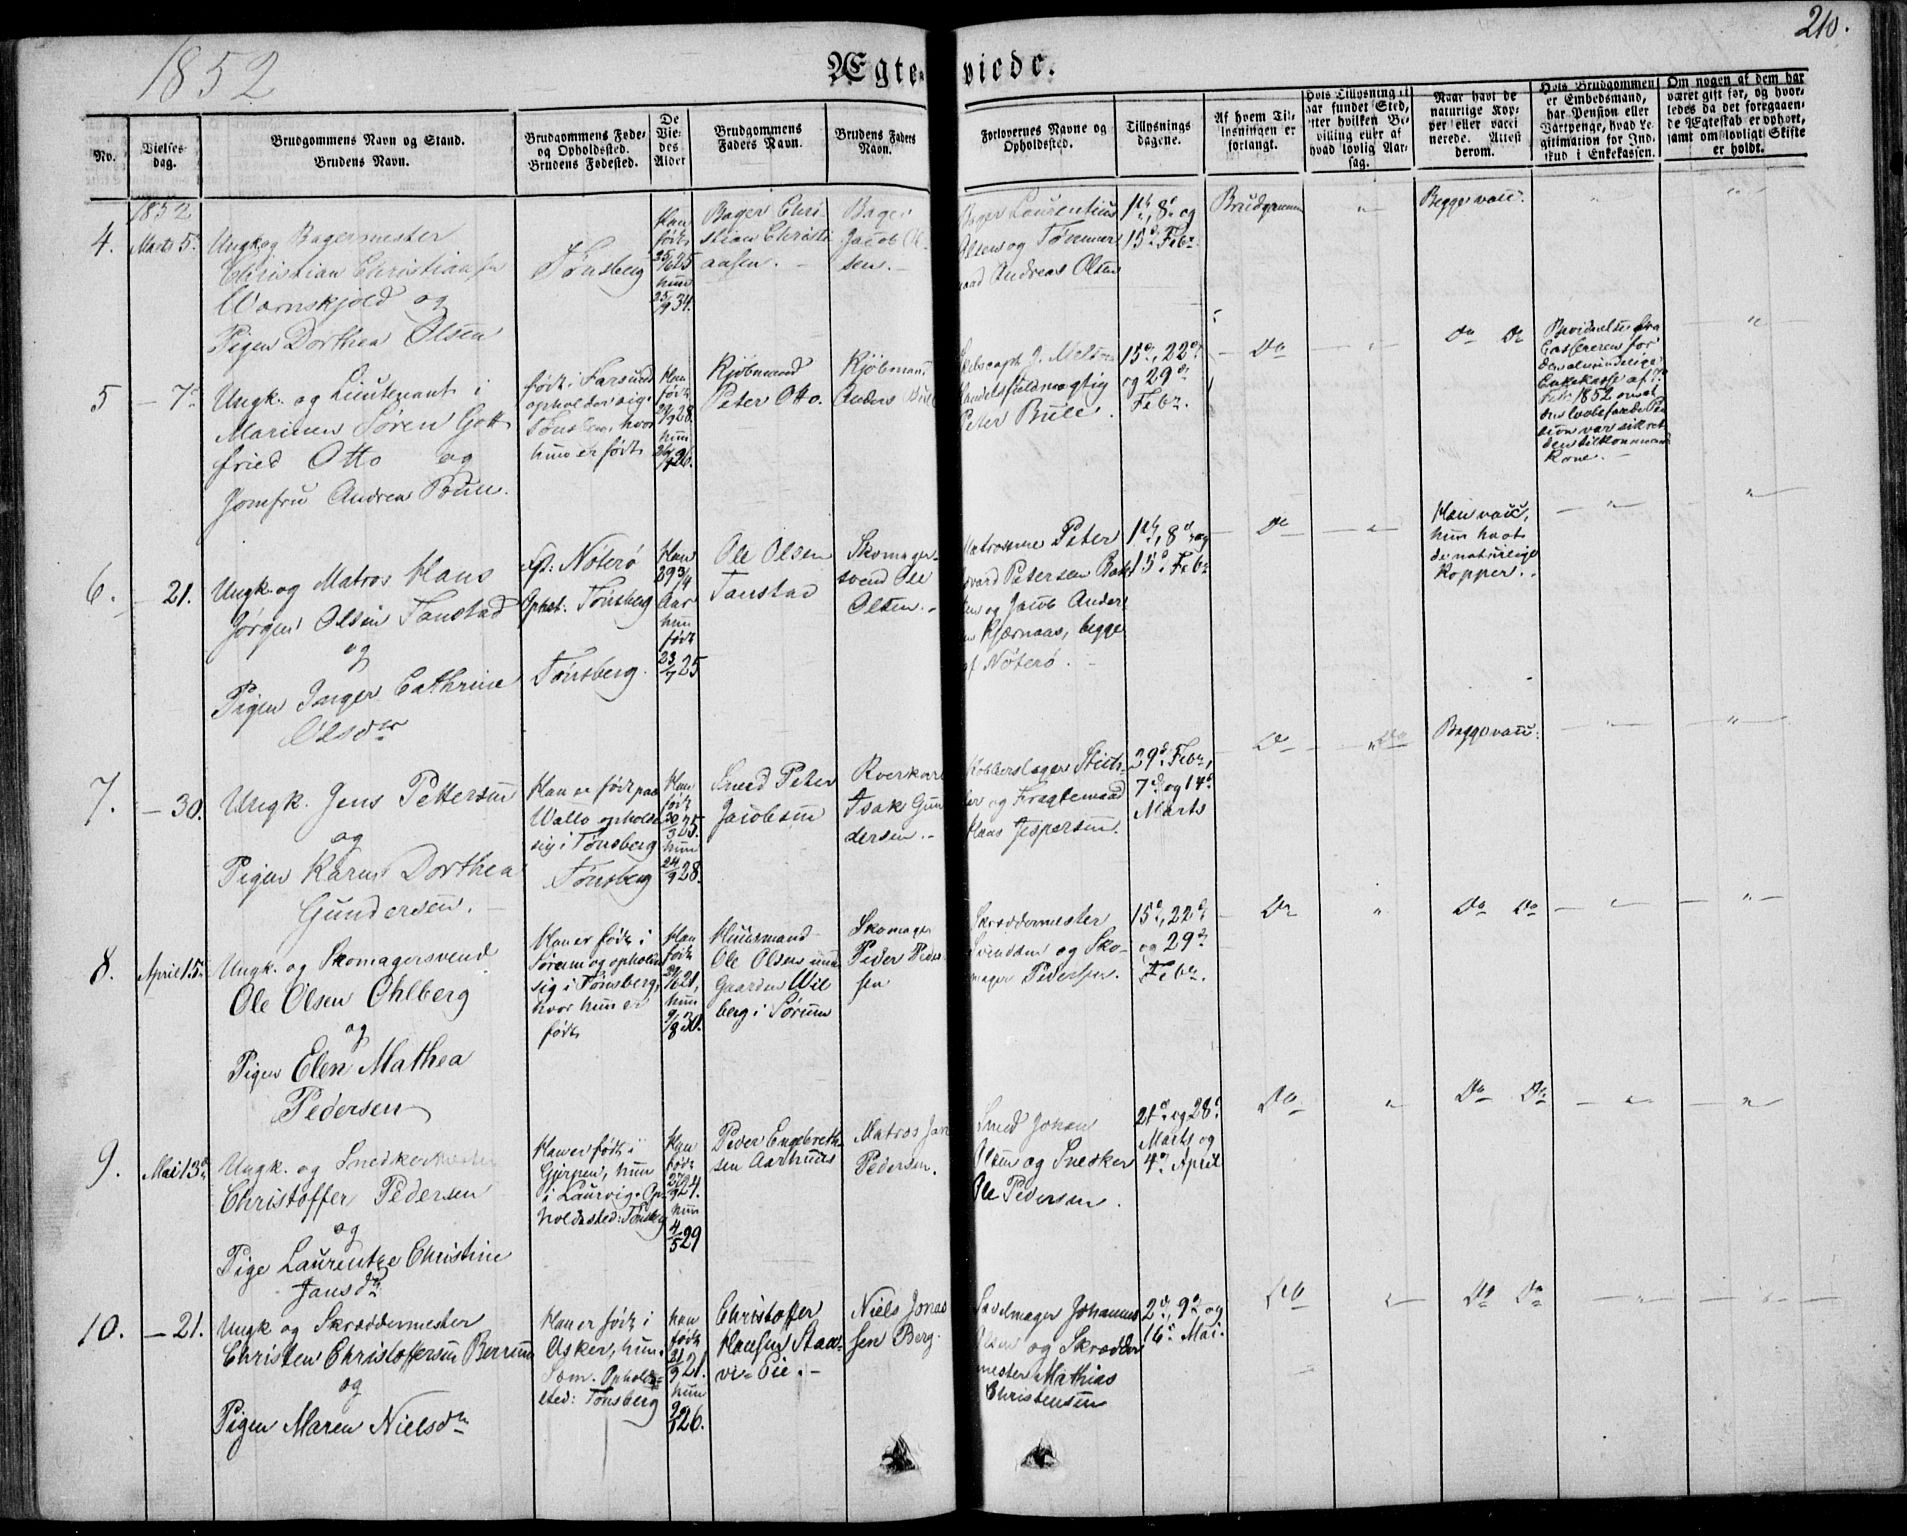 1852
210.
Ægteviede.
No.
Vielses-
dag.
Brudgommens Navn og Stand.
Brudens Navn.
Brudgommens Føde-
og Opholdssted.
Brudens Fødested.
De
Vie-
des
Alder
Brudgommens
Faders Navn.
Brudens Faders
Navn.
Forlovernes Navne og
Opholdssted.
Tillysnings
dagene.
Af hvem Til-
lysningen er
forlangt.
Hvis Tillysning ei
har fundet Sted,
efter hvilken Be-
villing eller af
hvad lovlig Aar-
sag.
Naar havt de
naturlige Kop-
per eller vacci
nerede. Attest
derom.
Hvis Brudgommen
er Embedsmand,
har Pension eller
Vartpenge, hvad Le-
gitimation for Ind-
skud i Enkekassen.
Om nogen af dem har
været gift før, og hvor-
ledes da det foregaaen-
de Ægteskab er ophørt,
samt om lovligt Skifte
er holdt.
1852
4.
Marts 5.
Ungk. og Bagermester
Christian Christiansen
Wærnskjold og
Pigen Dorthea Olsen
Tønsberg
Han
født
25/6 25
hun
25/9 34.
Bager Chri-
stian Christi
ansen.
Bager
Jacob Ol-
sen.
Bager Laurentius
Olsen og Tømmer
mand Andreas Olsen
1ste, 8de og
15de Febr.
Brudgommen
"
Begge vacc.
"
"
5
— 7de
Ungk. og Lieutenant i
Marinen Søren Gott
fried Otto og
Jomfru Andrea Bull.
født i Farsund
opholder sig i
Tønsberg, hvor
hun er født
Han
født
28.
hun
26.
Kjøbmand
Peter Otto.
Kjøbmand
Anders Bull
Skibscapt. J.
Handelsfuldmægtig
Peter Bull.
15de, 22de
og 29de
Febr.
Do
"
Do Do
Bevidnelse fra
Cassereren for
den almindelige
Enkekasse af
Febr. 1852
Kone.
"
6.
— 21.
Ungk. og Matros Hans
Jørgen Olsen Tanstad
og
Pigen Inger Cathrine
Olsdtr
Fp: Nøterø
Ophst: Tønsberg
Tønsberg.
Han
29 3/4
Aar
hun
født
23/7 25
Ole Olsen
Tanstad
Skomager-
svend Ole
Olsen.
Matroserne Peter
Edvard Petersen Bak
ken og Jacob Ander
sen Kjærnaas, begge
af Nøterø.
1ste, 8de og
15de Febr
Do
"
Han vacc.,
hun havt
de naturlige
Kopper.
"
"
7.
— 30.
Ungk. Jens Pettersen
og
Pigen Karen Dorthea
Gundersen.
Han er født paa
Vallø opholder
sig i Tønsberg
Tønsberg
Han
født
30/3 25.
hun
24/9 28.
Smed Peter
Jacobsen
Isak Gun
dersen.
Kobberslager
og Fragtemand
Hans Jespersen.
29de Febr,
7de og 14de
Marts
Do
Do
Begge vacc:
"
"
8.
April 15.
Ungk. og Skomagersvend
Ole Olsen Ohlberg
og
Pigen Elen Mathea
Pedersen
Han er født i
Sørum og opholder
sig i Tønsberg,
hvor hun er
født
Han
født
21,
hun
9/8 30.
Huusmand
Ole Olsen under
Gaarden Wil
berg i Sørum
Skomager
Peder Peder-
sen
Skræddermester
Svendsen og Sko-
mager Pedersen.
15de, 22de
og 29de
Febr.
Do
"
Do Do
"
"
9.
Mai 13de
Ungk. og Snedkermester
Christoffer Pedersen
og
Pige Laurentze Christine
Jansdtr
Han er født i
Gjerpen, hun
i Laurvig. Op-
holdssted: Tønsberg
Han
født
24.
hun
4/5 29
Peder Engebreth-
sen Aarhuus
Matros Jan
Pedersen.
Smed Johan
Olsen og Snedker
Ole Pedersen.
21de og 28de
Marts og
4de April
Do
"
Do Do
"
"
10.
— 21.
Ungk og Skræddermester
Christen Christoffersen Berrum
og
Pigen Maren Nielsdtr
Han er født i
Asker, hun i
Sem. Opholds-
sted: Tønsberg
Han
født
21/9 21.
hun
26.
Christoffer
Hansen Staa-
vi-Eie.
Niels Jonas
sen Berg.
Sadelmager Johannes
Olsen og Skrædder
mester Mathias
Christensen
2de, 9de og
16de Mai.
Do
"
Do Do
"
"